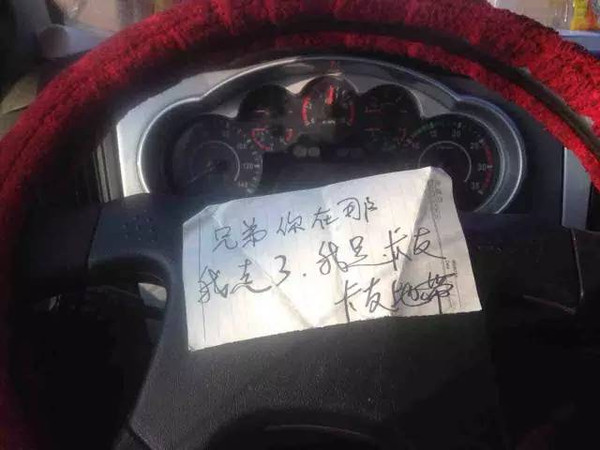 兄弟你在那
我走了.我是.卡友
卡友地带